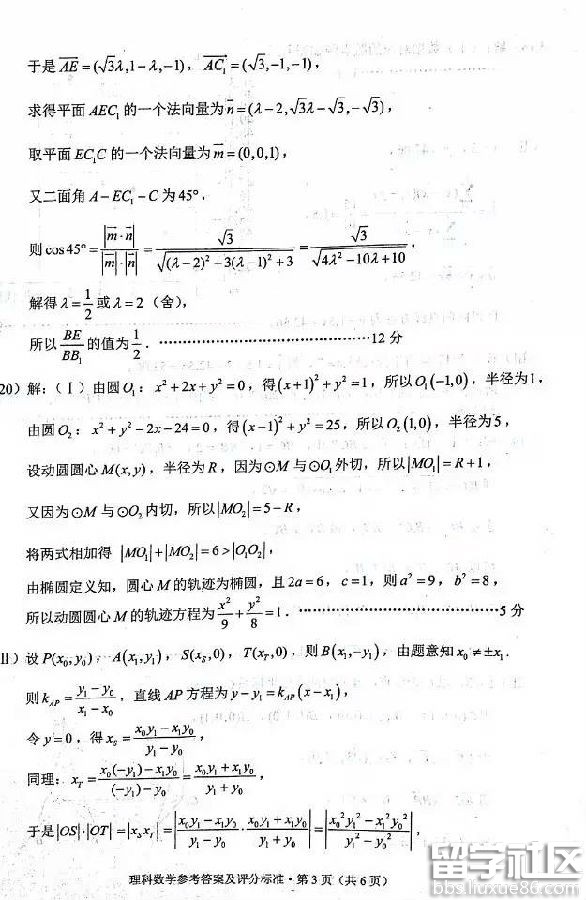 于是 $\overrightarrow{AE}=(\sqrt{3}\lambda,1-\lambda,-1)$，$\overrightarrow{AC_1}=(\sqrt{3},-1,-1)$，
求得平面 $AEC_1$ 的一个法向量为 $\vec{n}=(\lambda-2,\sqrt{3}\lambda-\sqrt{3},-\sqrt{3})$，
取平面 $EC_1C$ 的一个法向量为 $\vec{m}=(0,0,1)$，
又二面角 $A-EC_1-C$ 为 $45°$，
则 $\cos 45°=\frac{|\vec{m}\cdot\vec{n}|}{|\vec{m}|\cdot|\vec{n}|}=\frac{\sqrt{3}}{\sqrt{(\lambda-2)^2-3(\lambda-1)^2+3}}=\frac{\sqrt{3}}{\sqrt{4\lambda^2-10\lambda+10}}$，
解得 $\lambda=\frac{1}{2}$ 或 $\lambda=2$（舍），
所以 $\frac{BE}{BB_1}$ 的值为 $\frac{1}{2}$．………………………………12 分
20）解：（Ⅰ）由圆 $O_1$：$x^2+2x+y^2=0$，得 $(x+1)^2+y^2=1$，所以 $O_1(-1,0)$．半径为1．
由圆 $O_2$：$x^2+y^2-2x-24=0$，得 $(x-1)^2+y^2=25$，所以 $O_2(1,0)$，半径为5，
设动圆圆心 $M(x,y)$，半径为 $R$，因为⊙$M$ 与⊙$O_1$ 外切，所以 $|MO_1|=R+1$，
又因为⊙$M$ 与⊙$O_2$ 内切，所以 $|MO_2|=5-R$，
将两式相加得 $|MO_1|+|MO_2|=6>|O_1O_2|$，
由椭圆定义知，圆心 $M$ 的轨迹为椭圆，且 $2a=6$，$c=1$，则 $a^2=9$，$b^2=8$，
所以动圆圆心 $M$ 的轨迹方程为 $\frac{x^2}{9}+\frac{y^2}{8}=1$．………………………………5 分
Ⅱ）设 $P(x_0,y_0)$，$A(x_1,y_1)$，$S(x_S,0)$，$T(x_T,0)$．则 $B(x_1,-y_1)$，由题意知 $x_0\neq\pm x_1$．
则 $k_{AP}=\frac{y_1-y_0}{x_1-x_0}$．直线 $AP$ 方程为 $y-y_1=k_{AP}(x-x_1)$，
令 $y=0$，得 $x_S=\frac{x_0y_1-x_1y_0}{y_1-y_0}$，
同理：$x_T=\frac{x_0(-y_1)-x_1y_0}{(-y_1)-y_0}=\frac{x_0y_1+x_1y_0}{y_1+y_0}$，
于是 $|OS|\cdot|OT|=|x_Sx_T|=\left|\frac{x_0y_1-x_1y_0}{y_1-y_0}\cdot\frac{x_0y_1+x_1y_0}{y_1+y_0}\right|=\left|\frac{x_0^2y_1^2-x_1^2y_0^2}{y_1^2-y_0^2}\right|$，
理科数学参考答案及评分标准·第3页（共6页）
留学社区
liuxue86.com